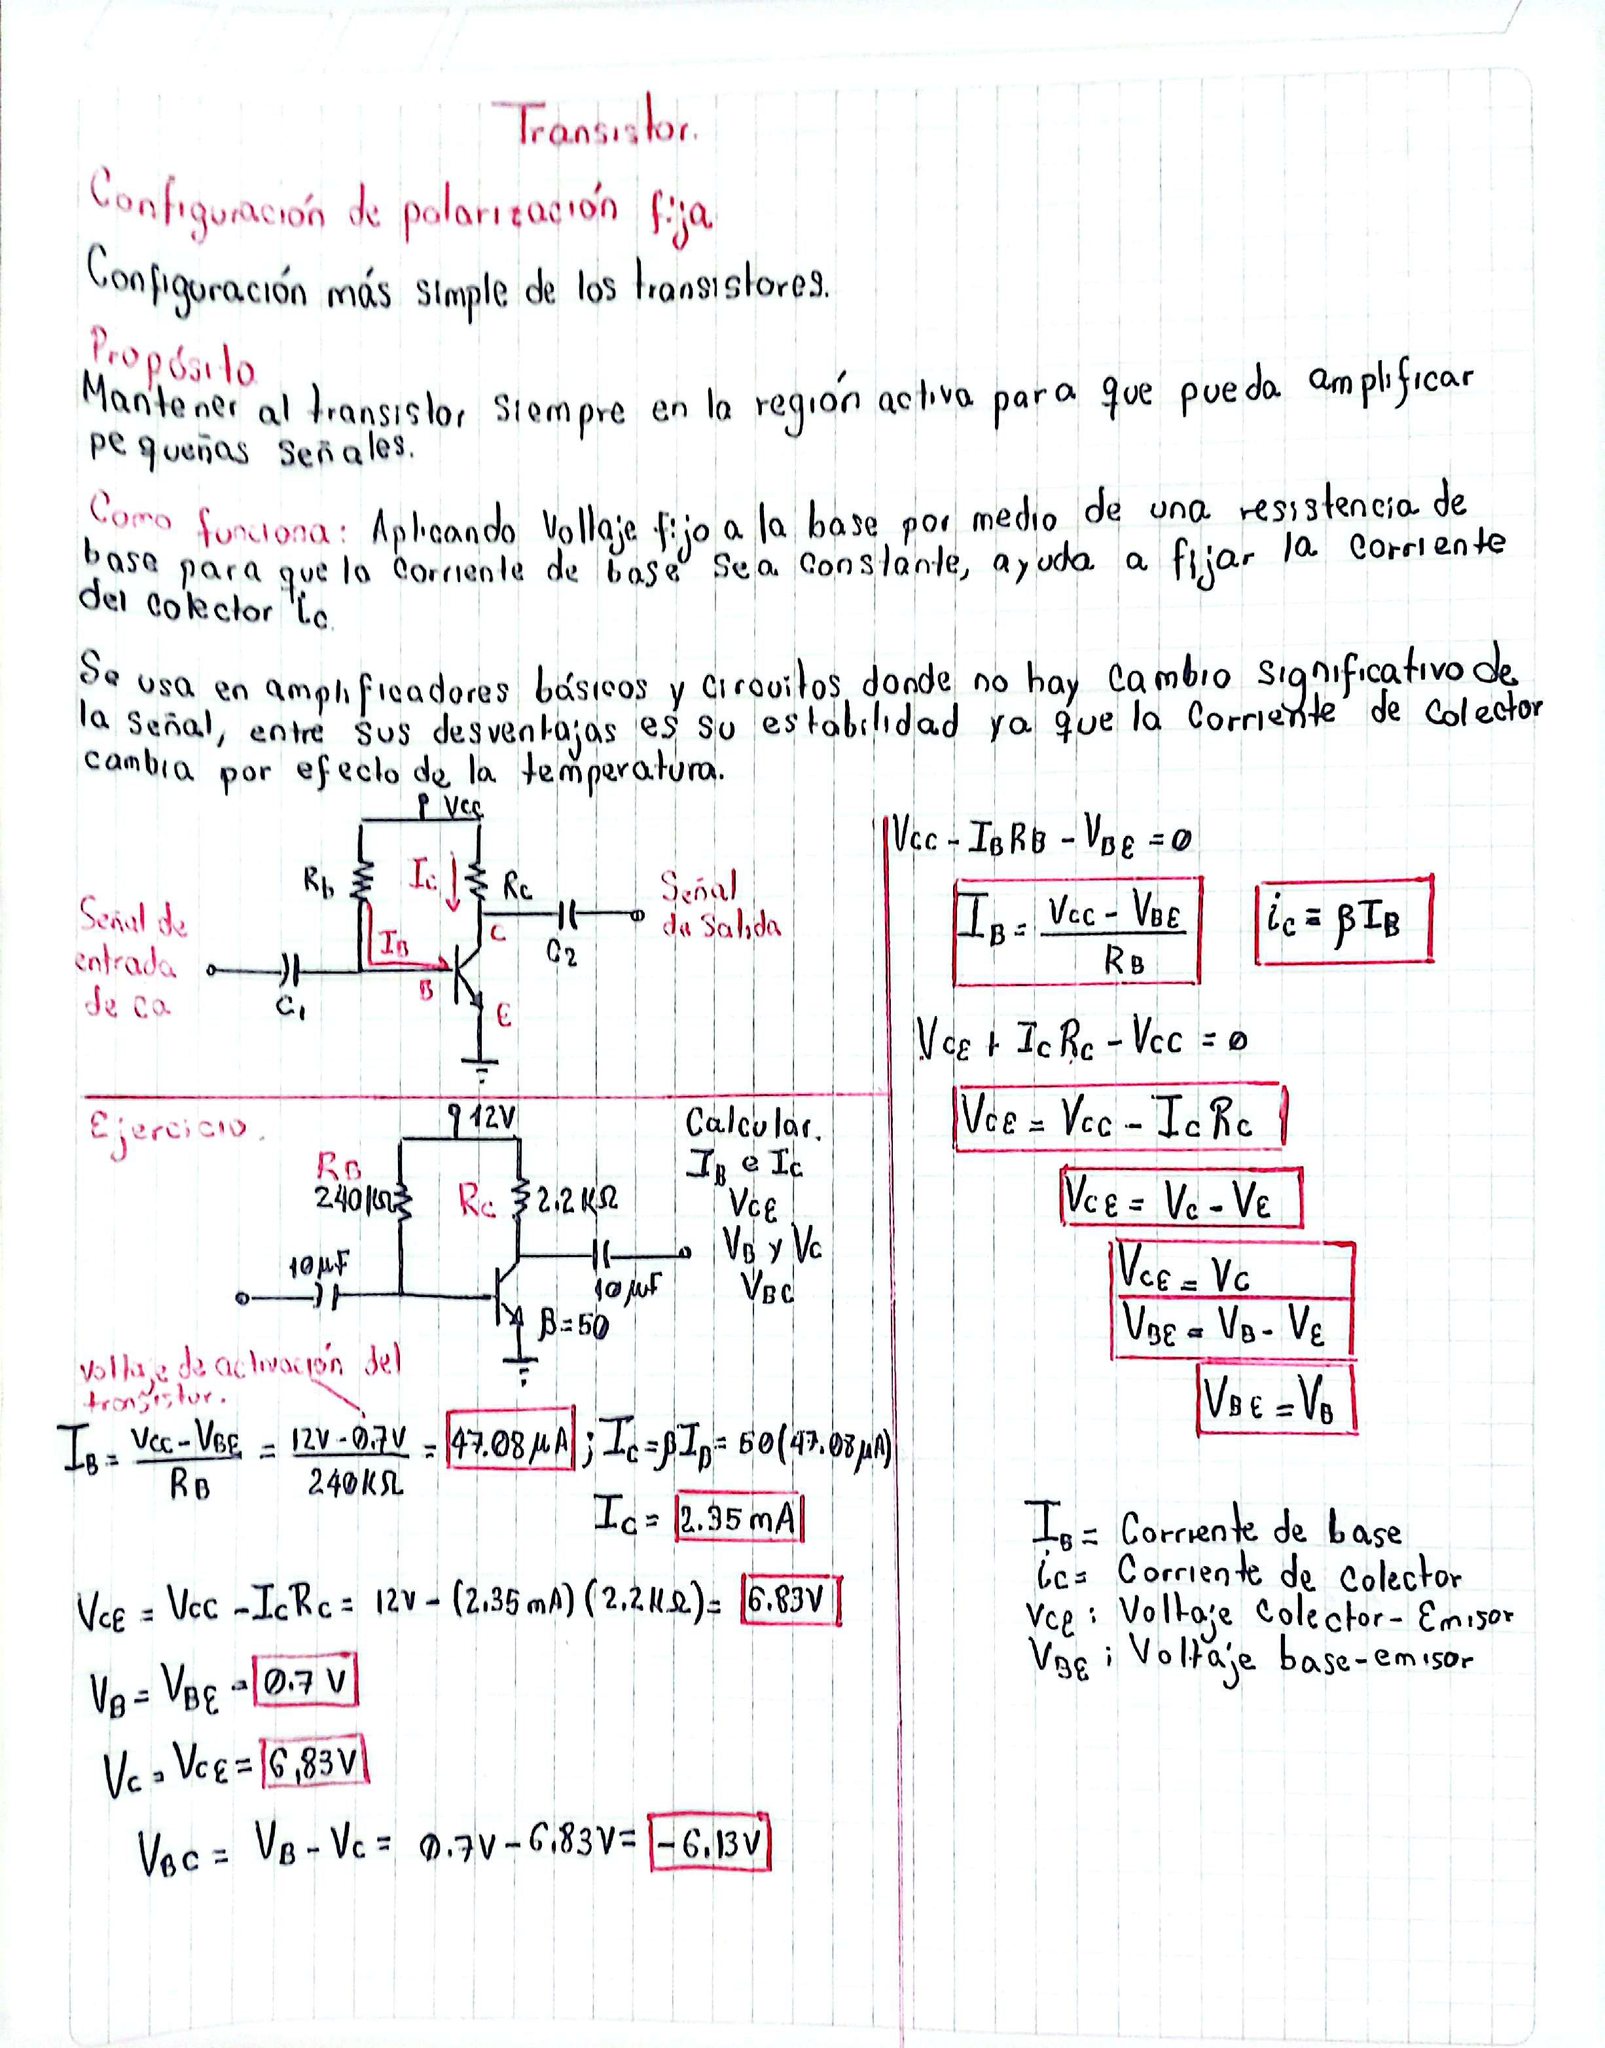 Transistor.
Configuración de polarización fija
Configuración más simple de los transistores.
Propósito
Mantener al transistor siempre en la región activa para que pueda amplificar
pequeñas señales.
Como funciona: Aplicando Voltaje fijo a la base por medio de una resistencia de
base para que la corriente de base sea constante, ayuda a fijar la corriente
del colector ic.
Se usa en amplificadores básicos y circuitos donde no hay cambio significativo de
la señal, entre sus desventajas es su estabilidad ya que la corriente de colector
cambia por efecto de la temperatura.
Vcc
Rb
Ic
Rc
Señal
de salida
C
C2
Señal de
entrada
de ca
IB
B
C1
E
Vcc - IBRB - VBE = 0
IB = (Vcc - VBE) / RB
ic = βIB
VCE + IcRc - Vcc = 0
VCE = Vcc - IcRc
VCE = Vc - VE
VCE = Vc
VBE = VB - VE
VBE = VB
Ejercicio.
12V
Calcular.
IB e Ic
VCE
VB y Vc
VBC
RB
240KΩ
Rc
2.2KΩ
10μF
10μF
β=50
Voltaje de activación del
transistor.
IB = (Vcc - VBE) / RB = (12V - 0.7V) / 240KΩ = 47.08μA ; Ic = βIB = 50(47.08μA)
Ic = 2.35mA
VCE = Vcc - IcRc = 12V - (2.35mA)(2.2KΩ) = 6.83V
VB = VBE = 0.7V
Vc = VCE = 6.83V
VBC = VB - Vc = 0.7V - 6.83V = -6.13V
IB = Corriente de base
ic = Corriente de colector
VCE: Voltaje Colector-Emisor
VBE: Voltaje base-emisor